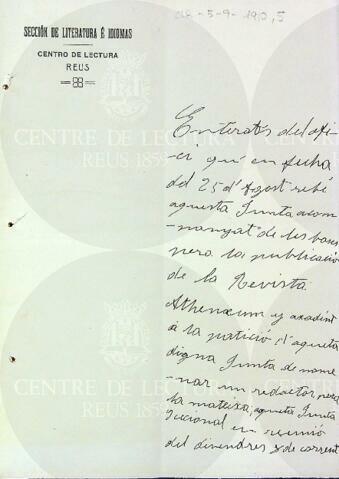 CLR-5-9-1910,5
SECCIÓN DE LITERATURA É IDIOMAS
CENTRO DE LECTURA
REUS
CENTRE DE LECTURA
REUS 1859
Enterats del ofi-
-ci qu'en fecha
del 25 d'Agost rebé
aquesta Junta acom-
-panyat de les bases
pera la publicació
de la Revista
Athenæum y
á la petició d'aquesta
digna Junta de nome-
-nar un redactor pera
la mateixa, aquesta Junta
Seccional en reunió
del divendres de corrent
CENTRE DE LECTURA
REUS 1859